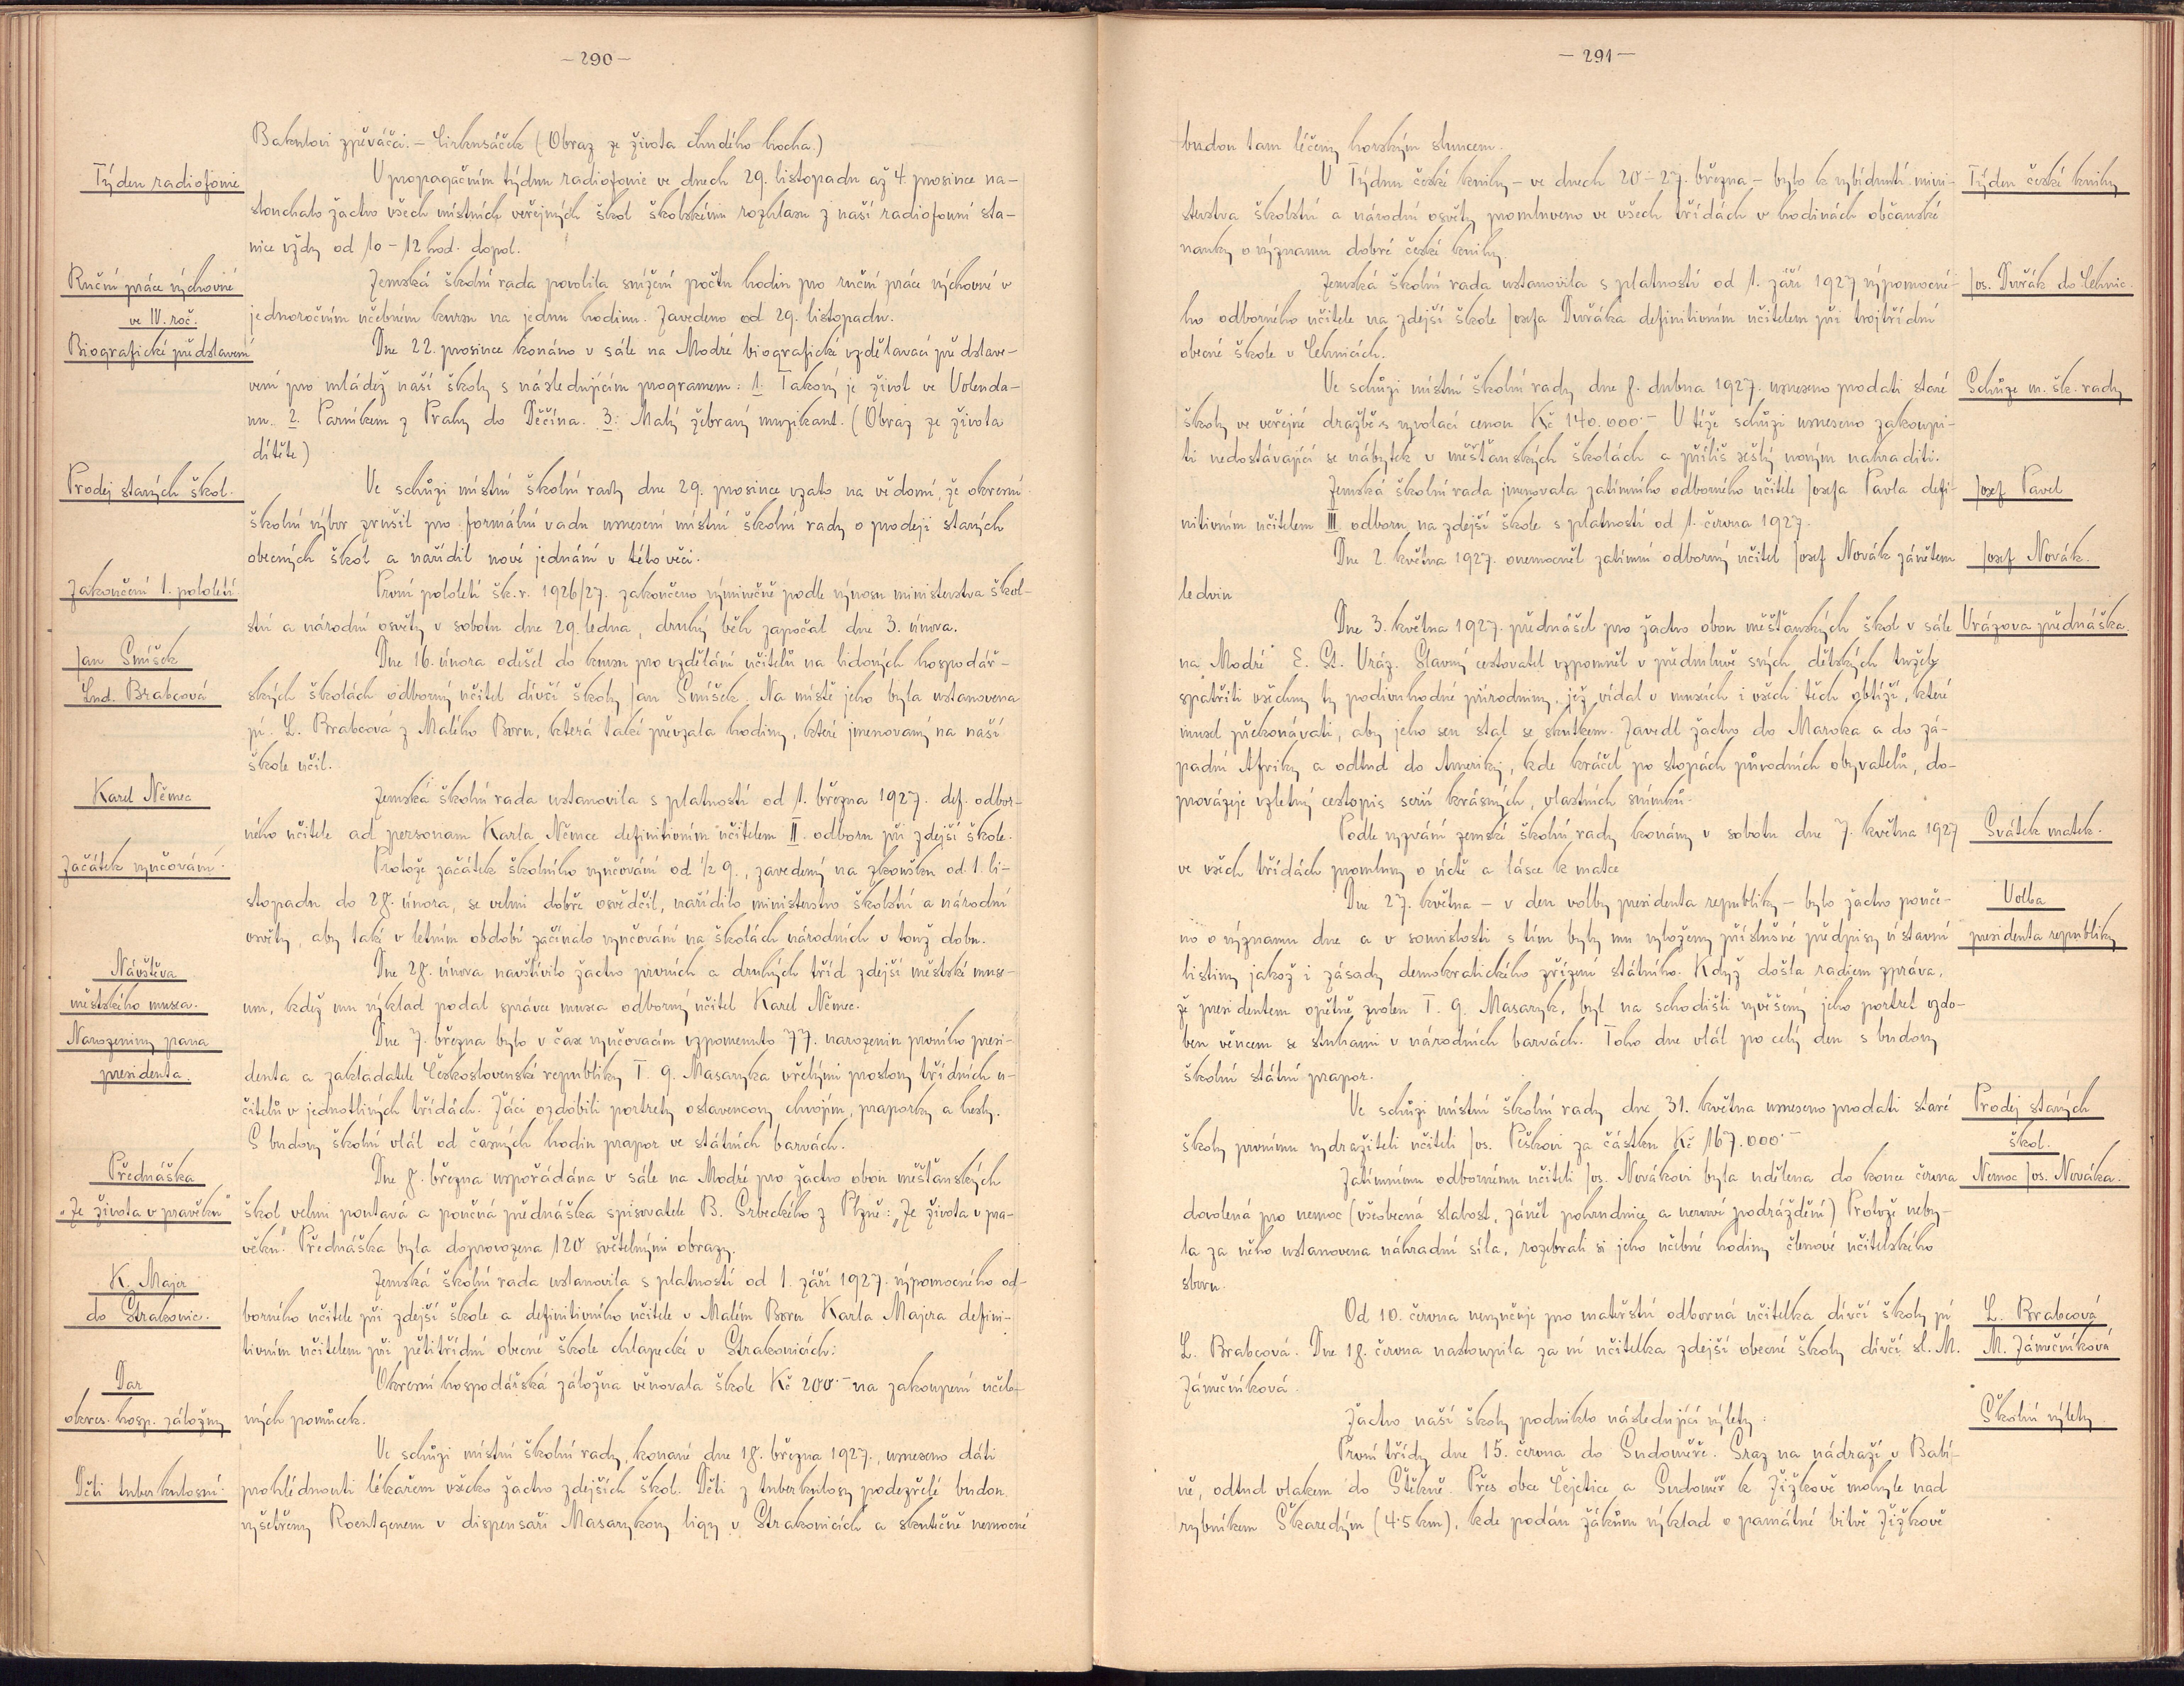 – 290 –
Bakulovi zpěváčci. – Cirkusáček (Obraz ze života chudého hocha.)
Týden radiofonie
V propagačním týdnu radiofonie ve dnech 29. listopadu až 4. prosince na-
slouchalo žactvo všech místních veřejných škol školskému rozhlasu z naší radiofonní sta-
nice vždy od 10 – 12 hod. dopol.
Ruční práce výchovné
ve IV. roč.
Zemská školní rada povolila snížení počtu hodin pro ruční práce výchovné v
jednoročním učebném kursu na jednu hodinu. Zavedeno od 29. listopadu.
Biografické představení
Dne 22. prosince konáno v sále na Modré biografické vzdělavací představe-
vení pro mládež naší školy s následujícím programem: 1. Takový je život ve Volenda-
mu. 2. Parníkem z Prahy do Děčína. 3. Malý žebravý muzikant. (Obraz ze života
dítěte)
Prodej starých škol.
Ve schůzi místní školní rady dne 29. prosince vzato na vědomí, že okresní
školní výbor zrušil pro formální vadu usnesení místní školní rady o prodeji starých
obecných škol a nařídil nové jednání v této věci.
Zakončení 1. pololetí.
První pololetí šk. r. 1926/27. zakončeno výminečně podle výnosu ministerstva škol-
ství a národní osvěty v sobotu dne 29. ledna, druhý běh započal dne 3. února.
Jan Smíšek
Lud. Brabcová
Dne 16. února odešel do kursu pro vzdělání učitelů na lidových hospodář-
ských školách odborný učitel dívčí školy Jan Smíšek. Na místě jeho byla ustanovena
pí. L. Brabcová z Malého Boru, která také převzala hodiny, které jmenovaný na naší
škole učil.
Karel Němec
Zemská školní rada ustanovila s platností od 1. března 1927. def. odbor-
ného učitele ad personam Karla Němce definitivním učitelem II. odboru při zdejší škole.
Začátek vyučování.
Protože začátek školního vyučování od ½ 9., zavedený na zkoušku od 1. li-
stopadu do 28. února, se velmi dobře osvědčil, nařídilo ministerstvo školství a národní
osvěty, aby také v letním období začínalo vyučování na školách národních v touž dobu.
Návštěva
městského musea.
Dne 28. února navštívilo žactvo prvních a druhých tříd zdejší městské muse-
um, kdež mu výklad podal správce musea odborný učitel Karel Němec.
Narozeniny pana
presidenta.
Dne 7. března bylo v čase vyučovacím vzpomenuto 77. narozenin prvního presi-
denta a zakladatele Československé republiky T. G. Masaryka vřelými proslovy třídních u-
čitelů v jednotlivých třídách. Žáci ozdobili portrety oslavencovy chvojím, praporky a hesly.
S budovy školní vlál od časných hodin prapor ve státních barvách.
Přednáška
„Ze života v pravěku“
Dne 8. března uspořádána v sále na Modré pro žactvo obou měšťanských
škol velmi poutavá a poučná přednáška spisovatele B. Srbeckého z Plzně: „Ze života v pra-
věku“. Přednáška byla doprovozena 120 světelnými obrazy.
K. Majer
do Strakonic.
Zemská školní rada ustanovila s platností od 1. září 1927. výpomocného od-
borného učitele při zdejší škole a definitivního učitele v Malém Boru Karla Majera defini-
tivním učitelem při pětitřídní obecné škole chlapecké v Strakonicích.
Dar
okres. hosp. záložny
Okresní hospodářská záložna věnovala škole Kč 200.– na zakoupení učeb-
ných pomůcek.
Děti tuberkulosní.
Ve schůzi místní školní rady, konané dne 18. března 1927., usneseno dáti
prohlédnouti lékařem všecko žactvo zdejších škol. Děti z tuberkulosy podezřelé budou
vyšetřeny Roentgenem v dispensáři Masarykovy ligy v Strakonicích a skutečně nemocné
– 291 –
budou tam léčeny horským sluncem.
V Týdnu české knihy – ve dnech 20 – 27. března – bylo k vybídnutí mini-
Týden české knihy
sterstva školství a národní osvěty promluveno ve všech třídách v hodinách občanské
nauky o významu dobré české knihy.
Zemská školní rada ustanovila s platností od 1. září 1927 výpomocné-
Jos. Dvořák do Lehnic.
ho odborného učitele na zdejší škole Josefa Dvořáka definitivním učitelem při trojtřídní
obecné škole v Lehnicích.
Ve schůzi místní školní rady dne 8. dubna 1927. usneseno prodati staré
Schůze m. šk. rady
školy ve veřejné dražbě s vyvolací cenou Kč 140.000.– V téže schůzi usneseno zakoupi-
ti nedostávající se nábytek v měšťanských školách a příliš sešlý novým nahraditi.
Zemská školní rada jmenovala zatímního odborného učitele Josefa Pavla defi-
Josef Pavel
nitivním učitelem III. odboru na zdejší škole s platností od 1. června 1927.
Dne 2. května 1927. onemocněl zatímní odborný učitel Josef Novák zánětem
Josef Novák.
ledvin
Dne 3. května 1927. přednášel pro žactvo obou měšťanských škol v sále
Vrázova přednáška.
na „Modré“ E. St. Vráz. Slavný cestovatel vzpomněl v předmluvě svých dětských tužeb
spatřiti všechny ty podivuhodné přírodniny, jež vídal v museích i všech těch obtíží, které
musel překonávati, aby jeho sen stal se skutkem. Zavedl žactvo do Maroka a do zá-
padní Afriky a odtud do Ameriky, kde kráčel po stopách původních obyvatelů, do-
provázeje vzletný cestopis serií krásných, vlastních snímků.
Podle vyzvání zemské školní rady konány v sobotu dne 7. května 1927
Svátek matek.
ve všech třídách promluvy o úctě a lásce k matce
Dne 27. května – v den volby presidenta republiky – bylo žactvo pouče-
Volba
presidenta republiky
no o významu dne a v souvislosti s tím byly mu vyloženy příslušné předpisy ústavní
listiny jakož i zásady demokratického zřízení státního. Když došla radiem zpráva,
že presidentem opětně zvolen T. G. Masaryk, byl na schodišti vyvěšený jeho portret ozdo-
ben věncem se stuhami v národních barvách. Toho dne vlál po celý den s budovy
školní státní prapor.
Ve schůzi místní školní rady dne 31. května usneseno prodati staré
Prodej starých
škol.
školy prvnímu vydražiteli učiteli Jos. Peškovi za částku Kč 167.000.–
Zatímnímu odbornému učiteli Jos. Novákovi byla udělena do konce června
Nemoc Jos. Nováka.
dovolená pro nemoc (všeobecná slabost, zánět pohrudnice a nervové podráždění) Protože neby-
la za něho ustanovena náhradní síla, rozebrali si jeho učebné hodiny členové učitelského
sboru.
Od 10. června nevyučuje pro mateřství odborná učitelka dívčí školy pí
L. Brabcová
L. Brabcová. Dne 18. června nastoupila za ni učitelka zdejší obecné školy dívčí sl. M.
M. Zámečníková
Zámečníková.
Žactvo naší školy podniklo následující výlety:
Školní výlety
První třídy dne 15. června do Sudoměře. Sraz na nádraží v Babí-
ně, odtud vlakem do Štěkně. Přes obce Čejetice a Sudoměř k Žižkově mohyle nad
rybníkem Škaredým (4·5 km), kde podán žákům výklad o památné bitvě Žižkově